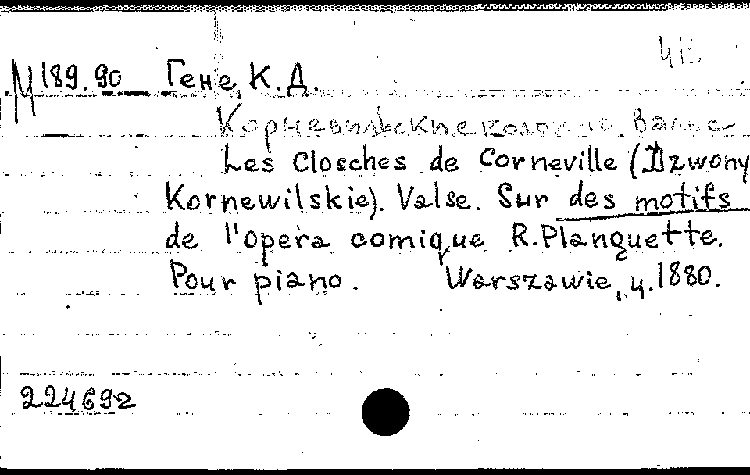 М 189.90 Гене, К.Д.
Корневильские колокола. Вальс
Les Closches de Corneville (Dzwony
Kornewilskie). Valse. Sur des motifs
de l'opera comique R. Planquette.
Pour piano. Warszawie, ц. 1880.
224692